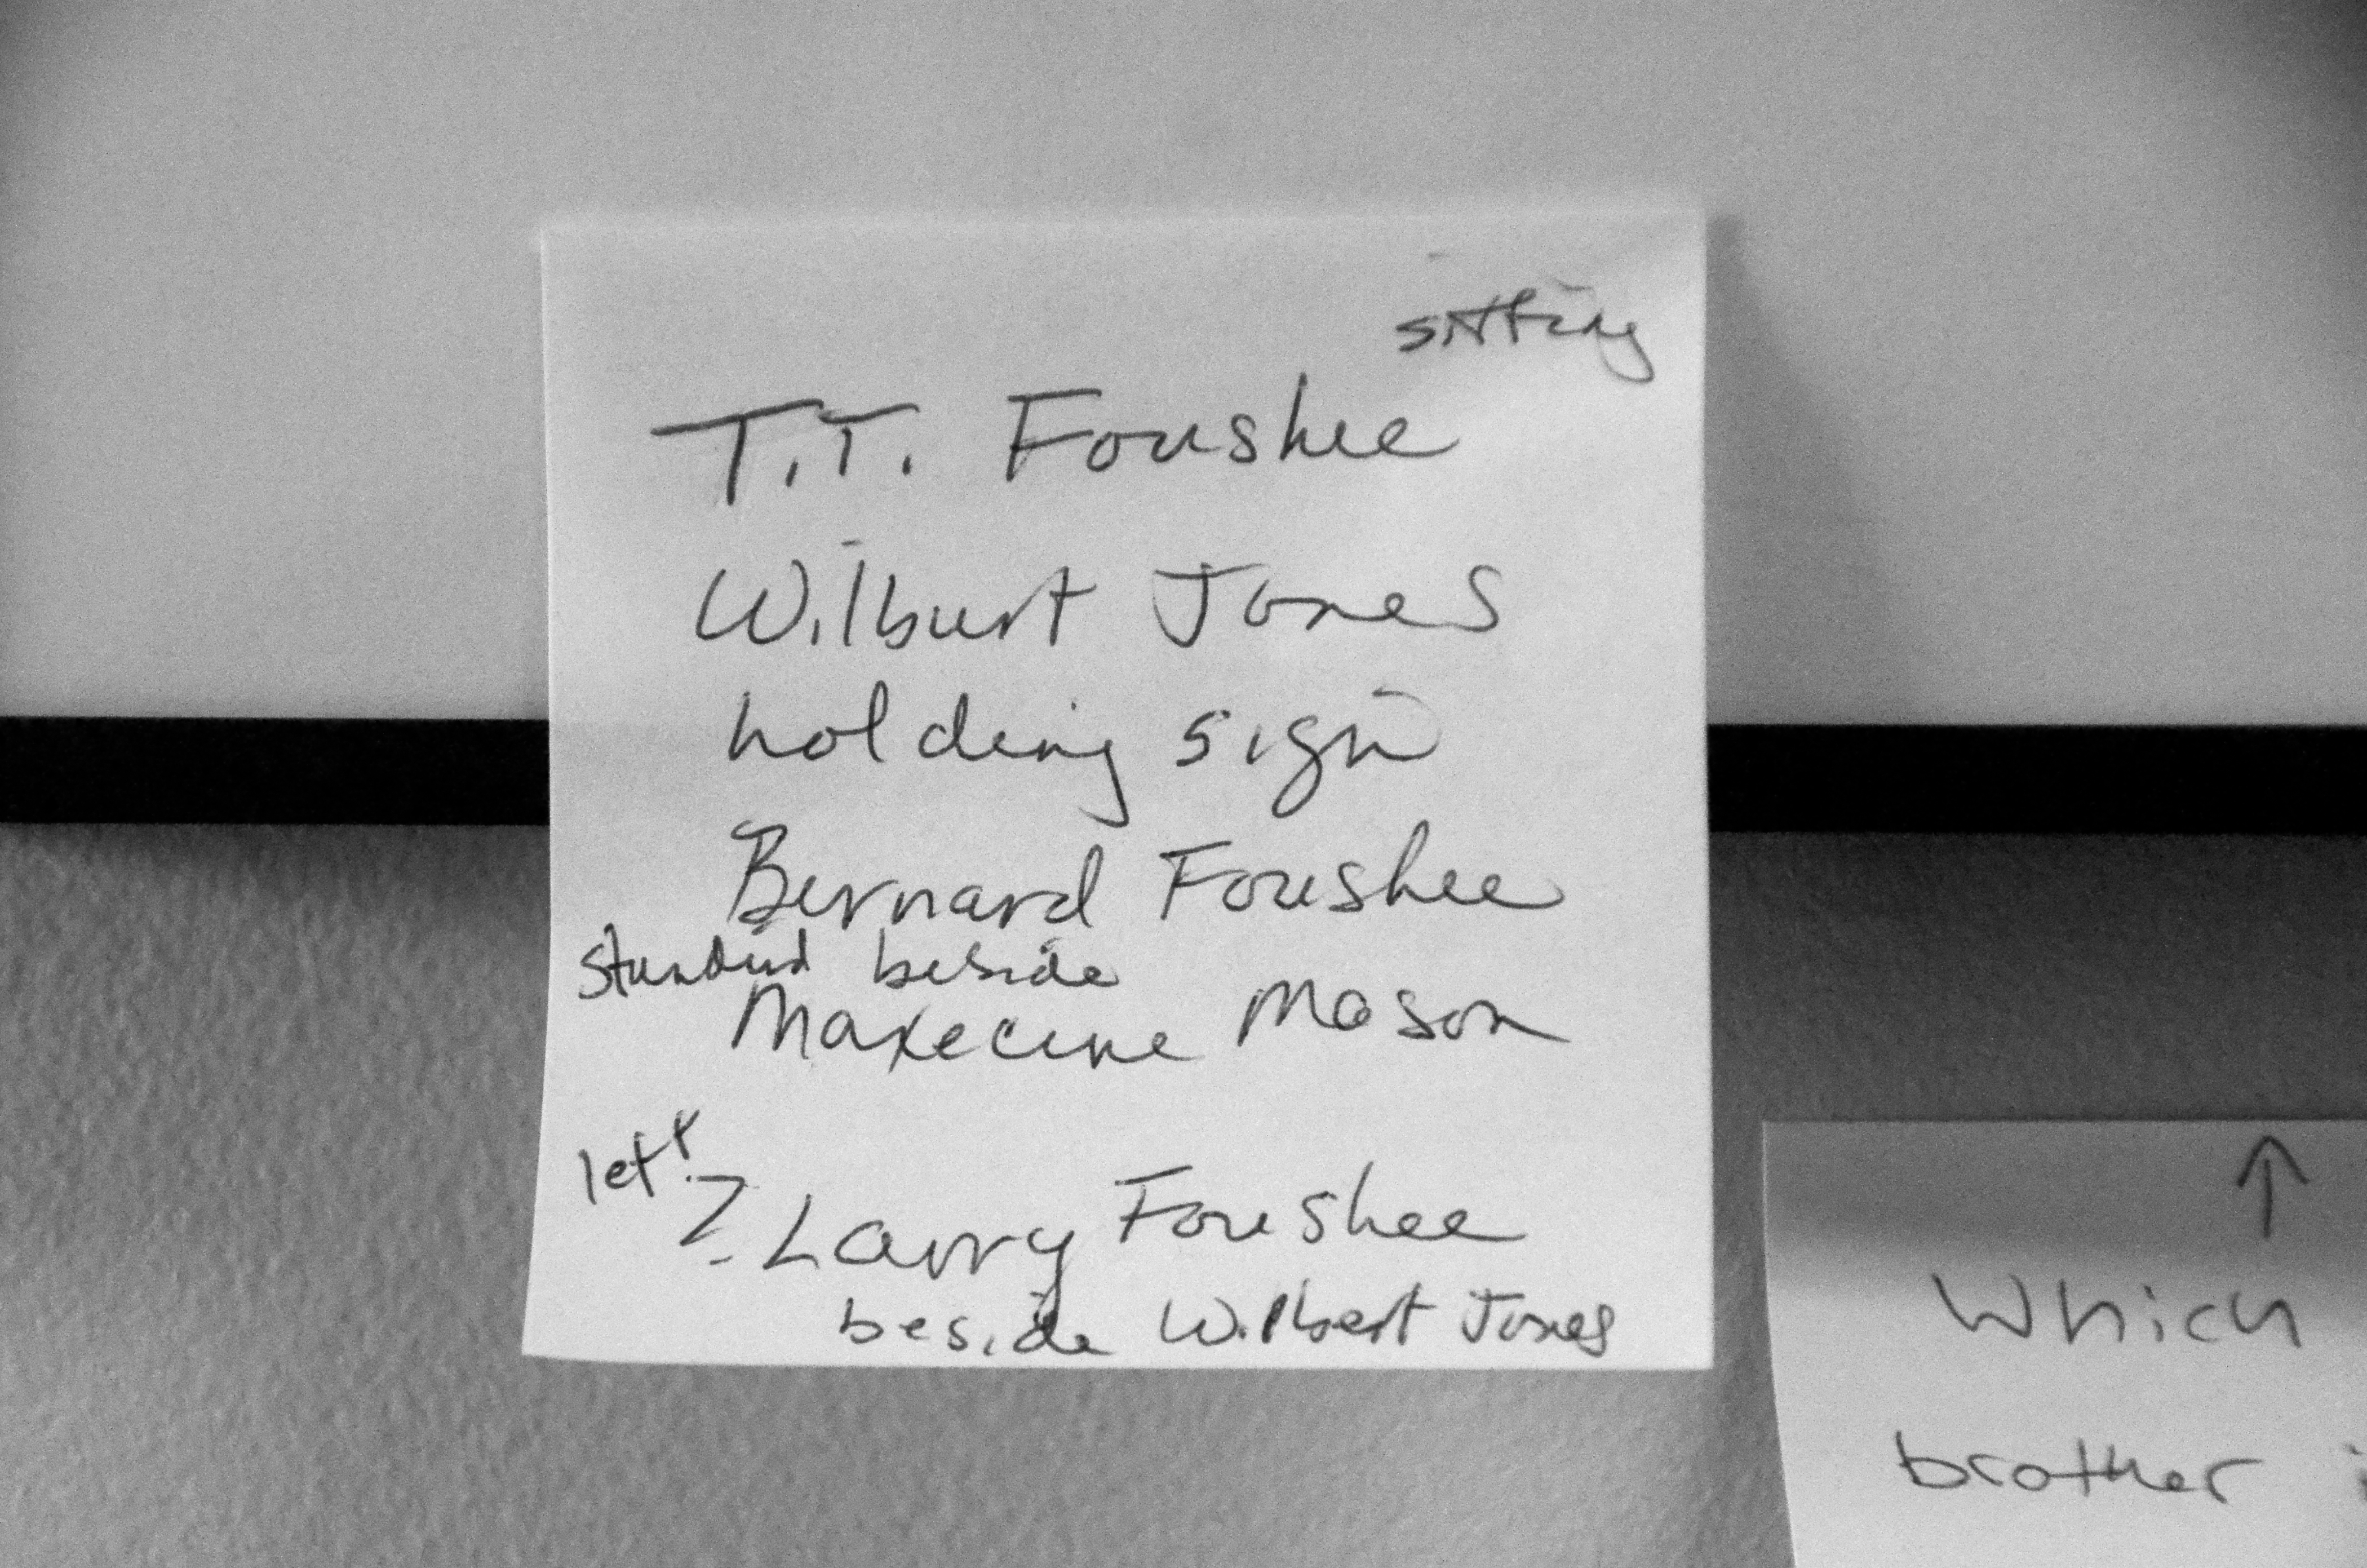 sitting
T.T. Foushee
Wilburt Jones
holding sign
Bernard Foushee
beside
Maxecine Mason
? Larry Foushee
beside Wilbert Jones
↑
Which
brother